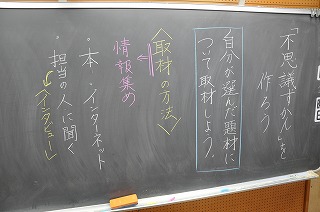 「不思議ずかん」を
作ろう
自分が選んだ題材に
ついて取材しよう。
〈取材の方法〉
情報集め
・本・インターネット
・担当の人に聞く
(インタビュー)